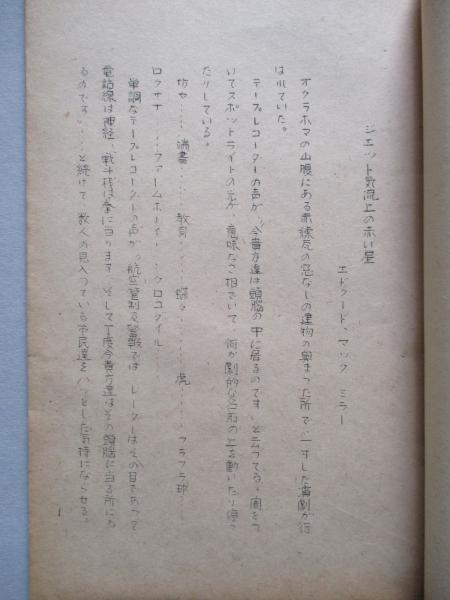 ジエット気流上の赤い星
エドワード、マック ミラー
オクラホマの山腹にある赤煉瓦の窓なしの建物の奥まった所で、一寸した演劇が行
はれていた。
テープレコーダーの声が、"今貴方達は頭脳の中に居るのです"と云ってる。闇をつ
いてスポットライトの光が、意味ありげでいて、何か劇的な名前の上を動いたり停っ
たりしている。
坊や……端書……教育……蝶々……虎……フラフラ球
ロクサナ……ファームボーイ……クロコダイル
単調なテープレコーダーの声が、"航空管制及警報では レーダーはその目であって
電話線は神経、戦斗機は拳に当ります そして丁度今貴方達はその頭脳に当る所にゐ
るのです"……と続けて 数人の見入っている市民達をハッとした気持にならせる。
1